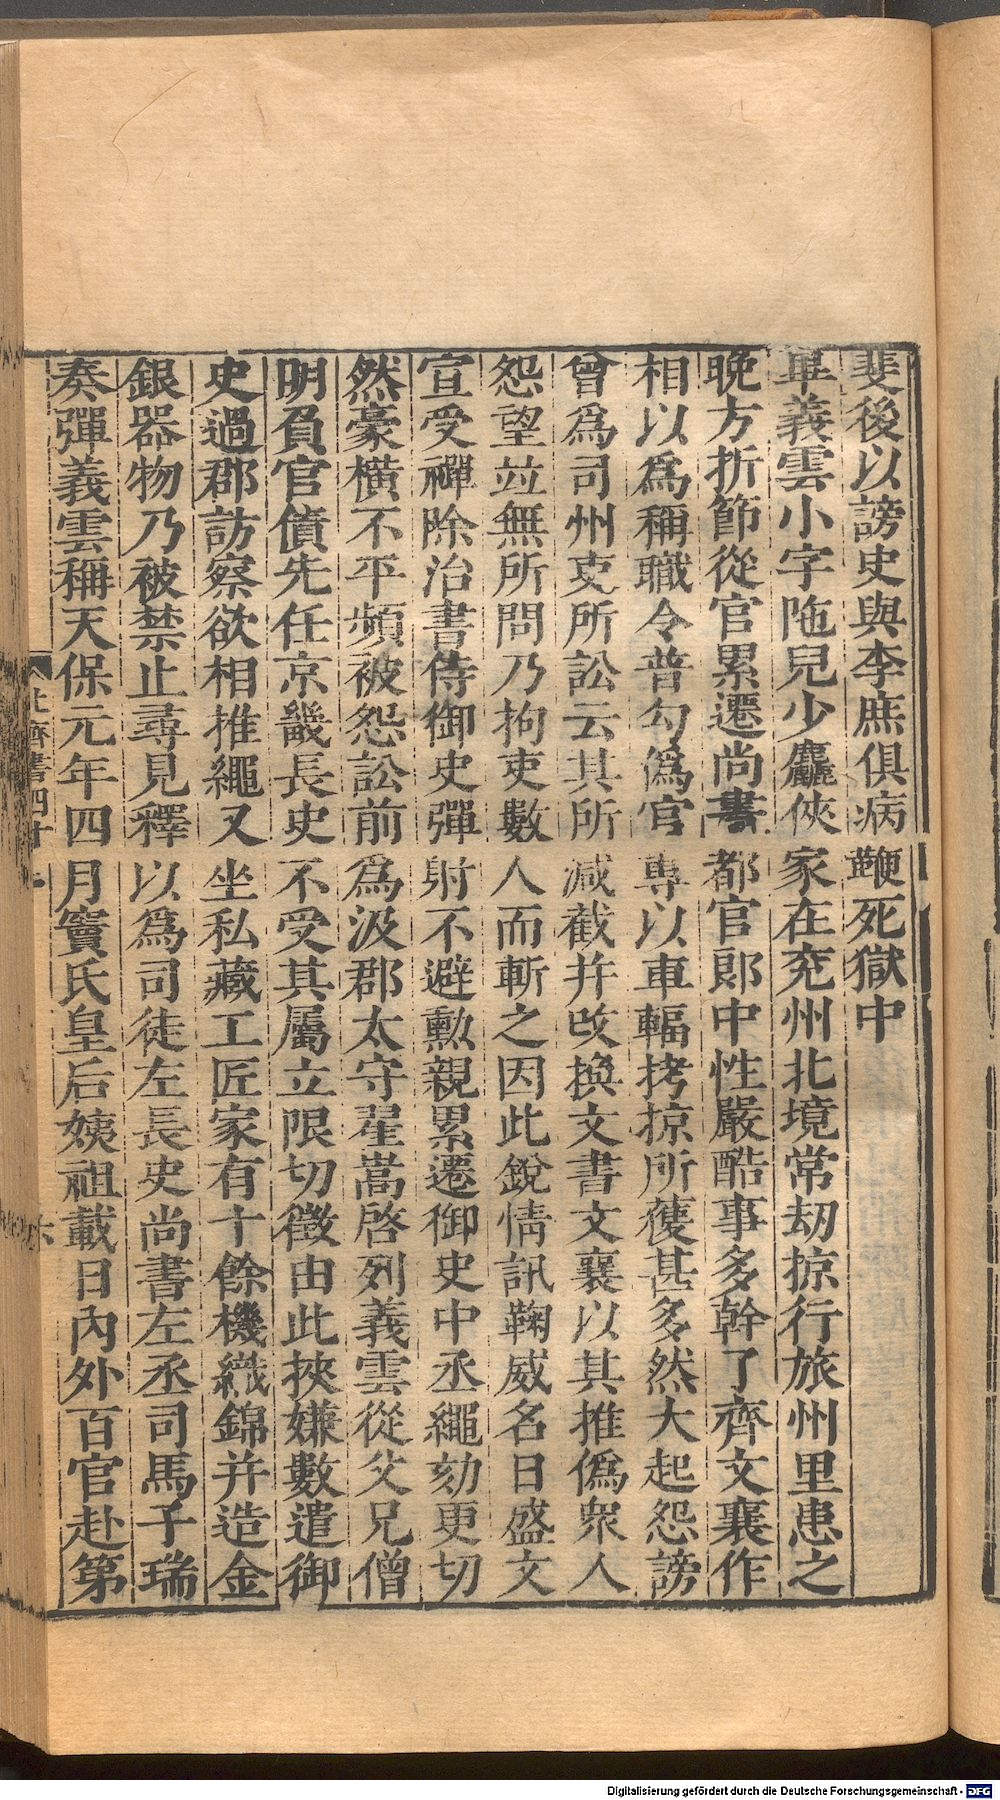 斐後以謗史與李庶俱病鞭死獄中
畢義雲小字陁兒少麤俠家在兖州北境常劫掠行旅州里患之
晚方折節從官累遷尚書都官郎中性嚴酷事多幹了齊文襄作
相以爲稱職令普勾僞官專以車輻拷掠所獲甚多然大起怨謗
曾爲司州吏所訟云其所減截并改換文書文襄以其推僞衆人
怨望並無所問乃拘吏數人而斬之因此銳情訊鞠威名日盛文
宣受禪除治書侍御史彈射不避勲親累遷御史中丞繩劾更切
然豪橫不平頻被怨訟前爲汲郡太守翟嵩啓列義雲從父兄僧
明負官債先任京畿長史不受其屬立限切徵由此挾嫌數遣御
史過郡訪察欲相推繩又坐私藏工匠家有十餘機織錦并造金
銀器物乃被禁止尋見釋以爲司徒左長史尚書左丞司馬子瑞
奏彈義雲稱天保元年四月竇氏皇后姨祖載日內外百官赴第
北齊書四十七
六
Digitalisierung gefördert durch die Deutsche Forschungsgemeinschaft - DFG